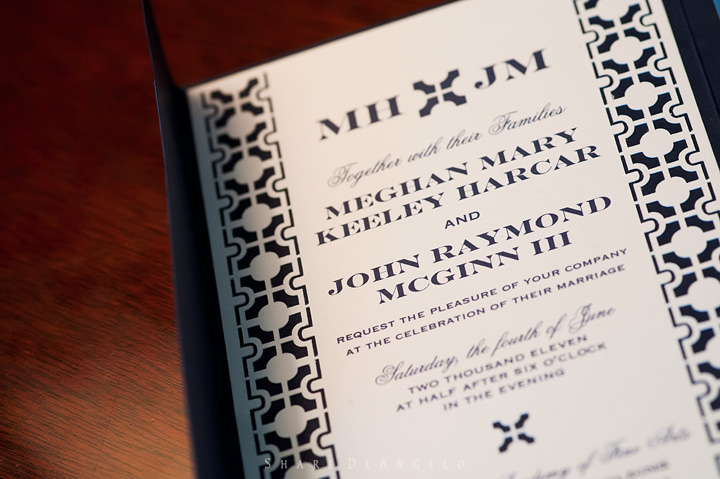 MH JM
Together with their Families
MEGHAN MARY
KEELEY HARCAR
AND
JOHN RAYMOND
MCGINN III
REQUEST THE PLEASURE OF YOUR COMPANY
AT THE CELEBRATION OF THEIR MARRIAGE
Saturday, the fourth of June
TWO THOUSAND ELEVEN
AT HALF AFTER SIX O'CLOCK
IN THE EVENING
Academy of Fine Arts
SHARI DIANGELO